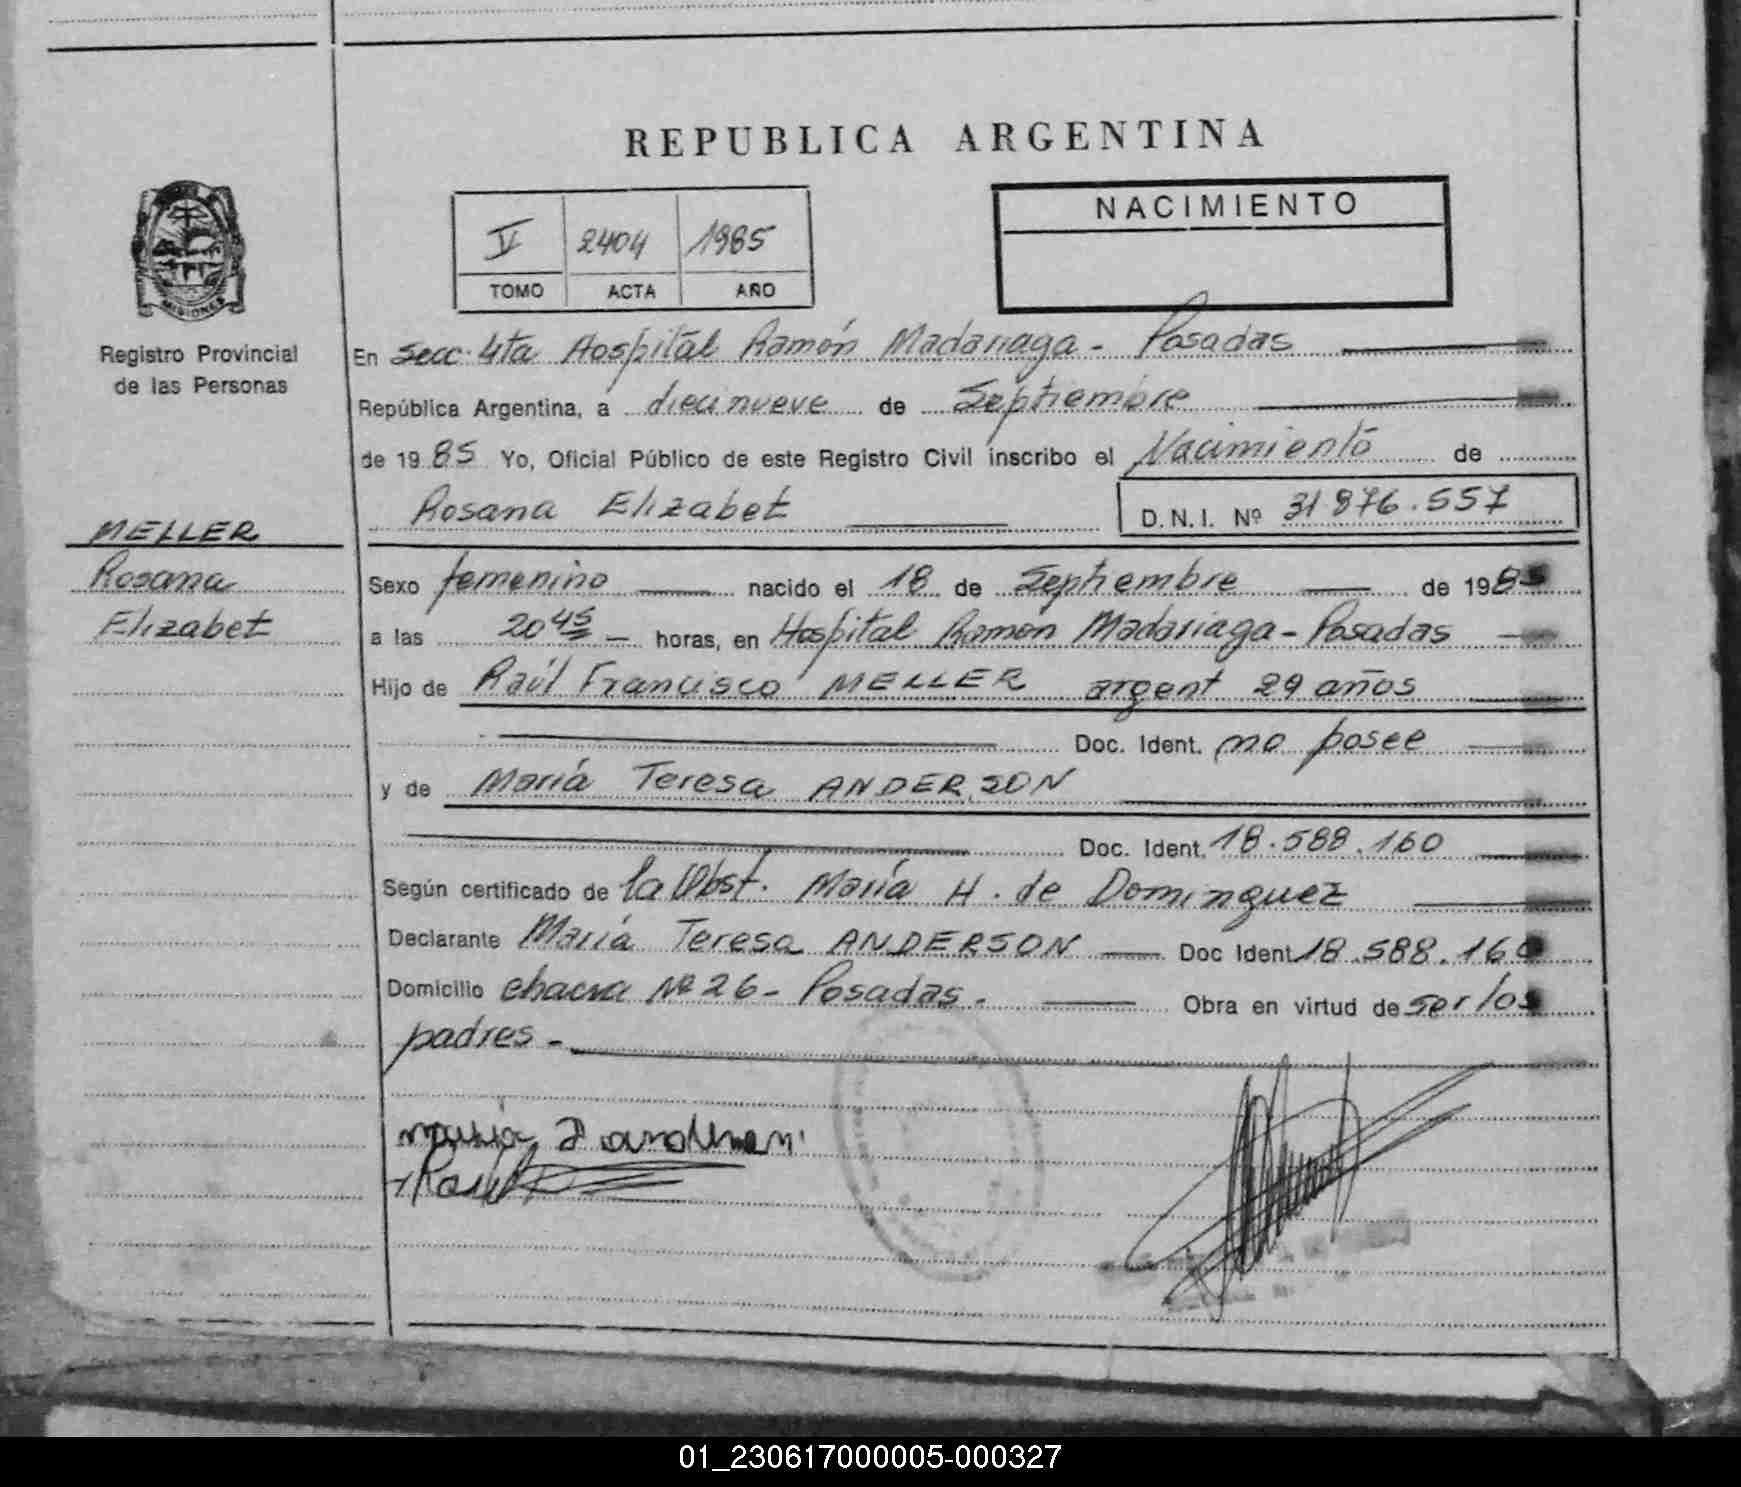 REPUBLICA ARGENTINA
MISIONES
Registro Provincial
de las Personas
V 2404 1985
TOMO ACTA AÑO
NACIMIENTO
En Secc. 4ta Hospital Ramón Madariaga - Posadas
República Argentina, a diecinueve de Septiembre
de 1985 Yo, Oficial Público de este Registro Civil inscribo el Nacimiento de
Rosana Elizabet D.N.I. Nº 31876.557
MELLER
Rosana
Elizabet
Sexo femenino nacido el 18 de Septiembre de 1985
a las 20 45 horas, en Hospital Ramon Madariaga - Posadas
Hijo de Raúl Francisco MELLER argent 29 años
Doc. Ident. no posee
y de María Teresa ANDERSON
Doc. Ident. 18.588.160
Según certificado de la Obst. María H. de Dominguez
Declarante María Teresa ANDERSON Doc Ident 18.588.160
Domicilio chacra Nº 26 - Posadas. Obra en virtud de ser los
padres -
01_230617000005-000327